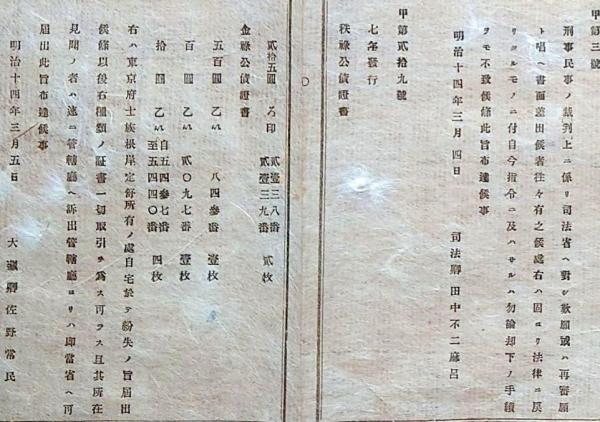 甲第三號
刑事民事ノ裁判上ニ係リ司法省ヘ對シ歎願或ハ再審願
ト唱ヘ書面差出候者往々有之候處右ハ固ヨリ法律ニ戻
リ候モノニ付自今指令ニ及ハサルハ勿論却下ノ手續
ヲモ不致候條此旨布達候事
明治十四年三月四日
司法卿田中不二麻呂
甲第貳拾九號
七年發行
秩祿公債證書
貳拾五圓 ろ印 貳壹三八番 貳壹三九番 貳枚
金祿公債證書
五百圓 乙い 八四參番 壹枚
百圓 乙い 貳〇九七番 壹枚
拾圓 乙い 自五四參七番 至五四四〇番 四枚
右ハ東京府士族根岸定舒所有ノ處自宅於テ紛失ノ旨屆出
候條以後右種類ノ証書一切取引ヲ爲ス可ラス且其所在
見聞ノ者ハ速ニ管轄廳ヘ訴出管轄廳ヨリハ即當省ヘ可
屆出此旨布達候事
明治十四年三月五日
大藏卿佐野常民